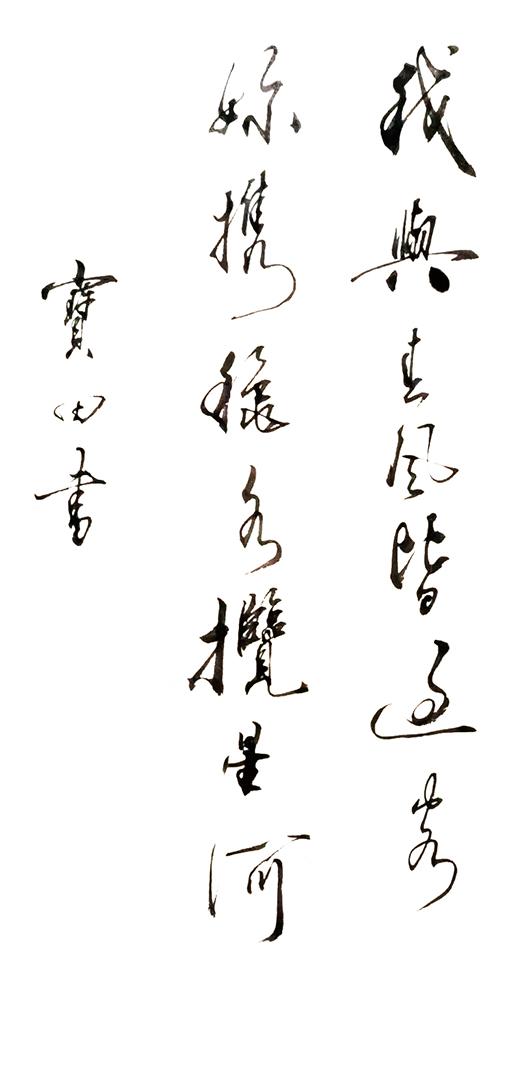 我與春風皆過客
妳攜穐水攬星河
寶田書